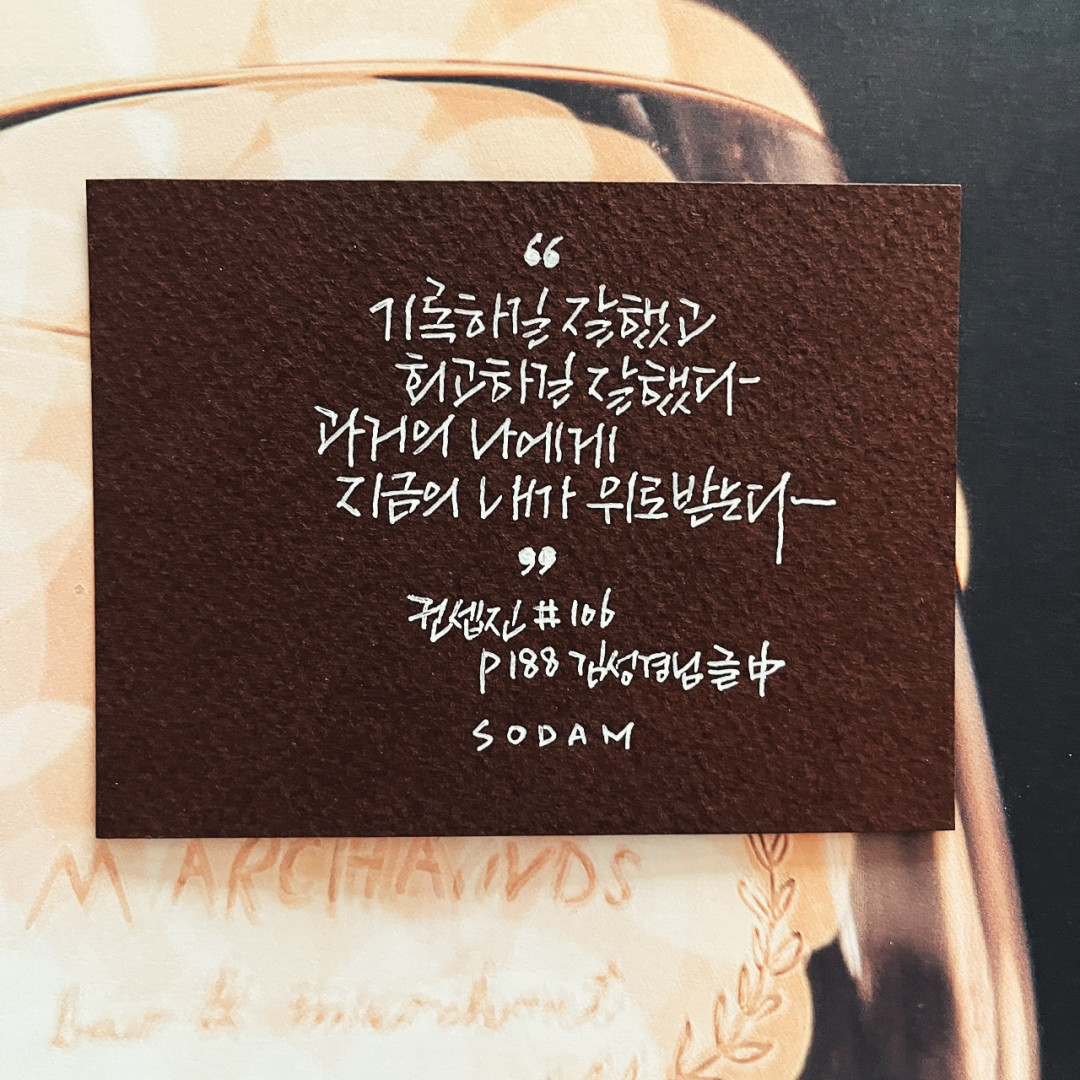 “
기록하길 잘했고
회고하길 잘했다
과거의 나에게
지금의 내가 위로받는다
”
컨셉진 #106
p188 김성경님 글 中
SODAM
MARCHANDS
bar & merchant